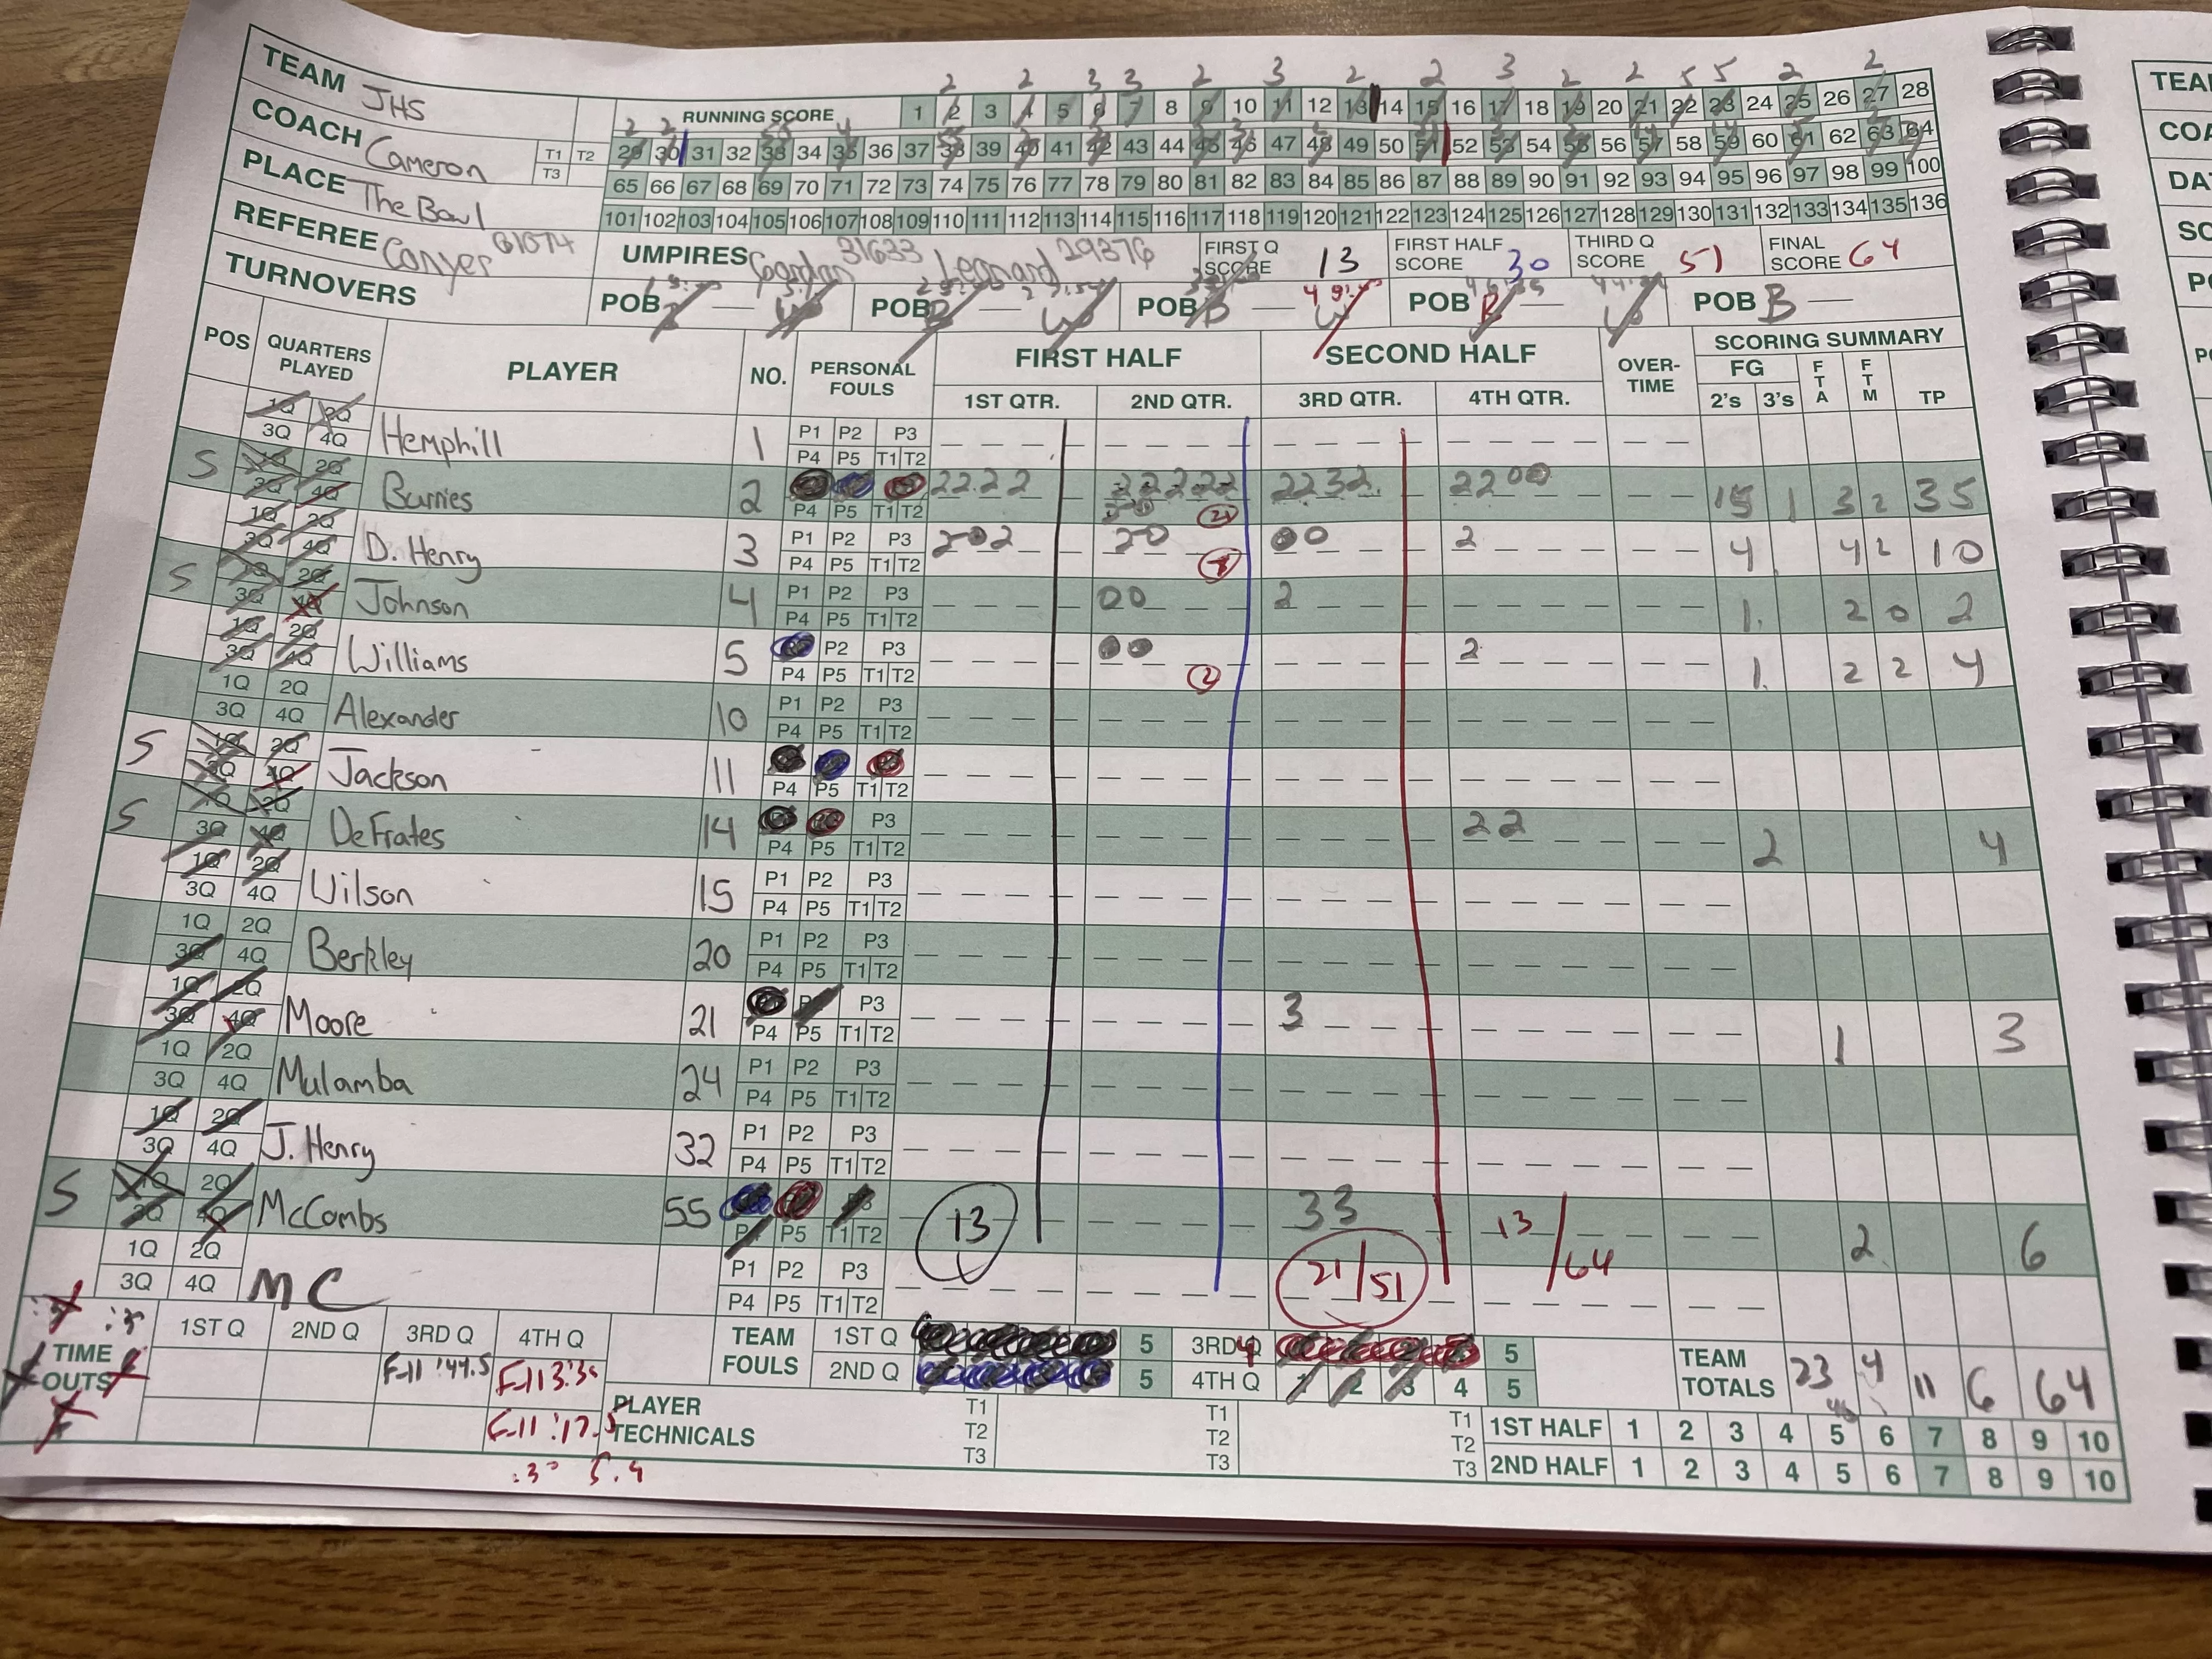 TEAM JHS
COACH Cameron
T1 T2
T3
PLACE The Bowl
REFEREE Conyer 61074
TURNOVERS
2 2 3 3 2 3 2 2 3 2 2 5 5 2 2
RUNNING SCORE 1 2 3 4 5 6 7 8 9 10 11 12 13 14 15 16 17 18 19 20 21 22 23 24 25 26 27 28
29 30 31 32 33 34 35 36 37 38 39 40 41 42 43 44 45 46 47 48 49 50 51 52 53 54 55 56 57 58 59 60 61 62 63 64
65 66 67 68 69 70 71 72 73 74 75 76 77 78 79 80 81 82 83 84 85 86 87 88 89 90 91 92 93 94 95 96 97 98 99 100
101 102 103 104 105 106 107 108 109 110 111 112 113 114 115 116 117 118 119 120 121 122 123 124 125 126 127 128 129 130 131 132 133 134 135 136
UMPIRES 31633 Leonard 29376 FIRST Q SCORE 13 FIRST HALF SCORE 30 THIRD Q SCORE 51 FINAL SCORE 64
POB POB B POB B POB POB B
POS QUARTERS PLAYED PLAYER NO. PERSONAL FOULS FIRST HALF SECOND HALF OVER-TIME SCORING SUMMARY
1ST QTR. 2ND QTR. 3RD QTR. 4TH QTR. FG 2's 3's FTA FTM TP
1Q 2Q 3Q 4Q Hemphill 1 P1 P2 P3 P4 P5 T1 T2
S 1Q 2Q 3Q 4Q Burries 2 P4 P5 T1 T2 2 2 2 2 2 2 2 2 2 2 2 3 2 2 2 0 0 15 1 3 2 35
1Q 2Q 3Q 4Q D. Henry 3 P1 P2 P3 P4 P5 T1 T2 2 0 2 2 0 0 0 2 4 4 2 10
S 1Q 2Q 3Q 4Q Johnson 4 P1 P2 P3 P4 P5 T1 T2 0 0 2 1 2 0 2
1Q 2Q 3Q 4Q Williams 5 P2 P3 P4 P5 T1 T2 2 2 1 2 2 4
1Q 2Q 3Q 4Q Alexander 10 P1 P2 P3 P4 P5 T1 T2
S 1Q 2Q 3Q 4Q Jackson 11 P4 P5 T1 T2
S 1Q 2Q 3Q 4Q DeFrates 14 P3 P4 P5 T1 T2 2 2 2 4
1Q 2Q 3Q 4Q Wilson 15 P1 P2 P3 P4 P5 T1 T2
1Q 2Q 3Q 4Q Berkley 20 P1 P2 P3 P4 P5 T1 T2
1Q 2Q 3Q 4Q Moore 21 P3 P4 P5 T1 T2 3 1 3
1Q 2Q 3Q 4Q Mulamba 24 P1 P2 P3 P4 P5 T1 T2
1Q 2Q 3Q 4Q J. Henry 32 P1 P2 P3 P4 P5 T1 T2
S 1Q 2Q 3Q 4Q McCombs 55 P5 T1 T2 13 3 3 13/64 2 6
1Q 2Q 3Q 4Q MC P1 P2 P3 P4 P5 T1 T2 21/51
TIME OUTS 1ST Q 2ND Q 3RD Q 4TH Q
F-11 :44.5 F-11 3:30
F-11 :17.5
:30 5.4
TEAM FOULS 1ST Q 5 3RD Q 5
2ND Q 5 4TH Q 1 2 3 4 5
TEAM TOTALS 23 4 11 6 64
46
PLAYER TECHNICALS T1 T2 T3 T1 T2 T3 T1 T2 T3
1ST HALF 1 2 3 4 5 6 7 8 9 10
2ND HALF 1 2 3 4 5 6 7 8 9 10
TEA
COA
DA
SC